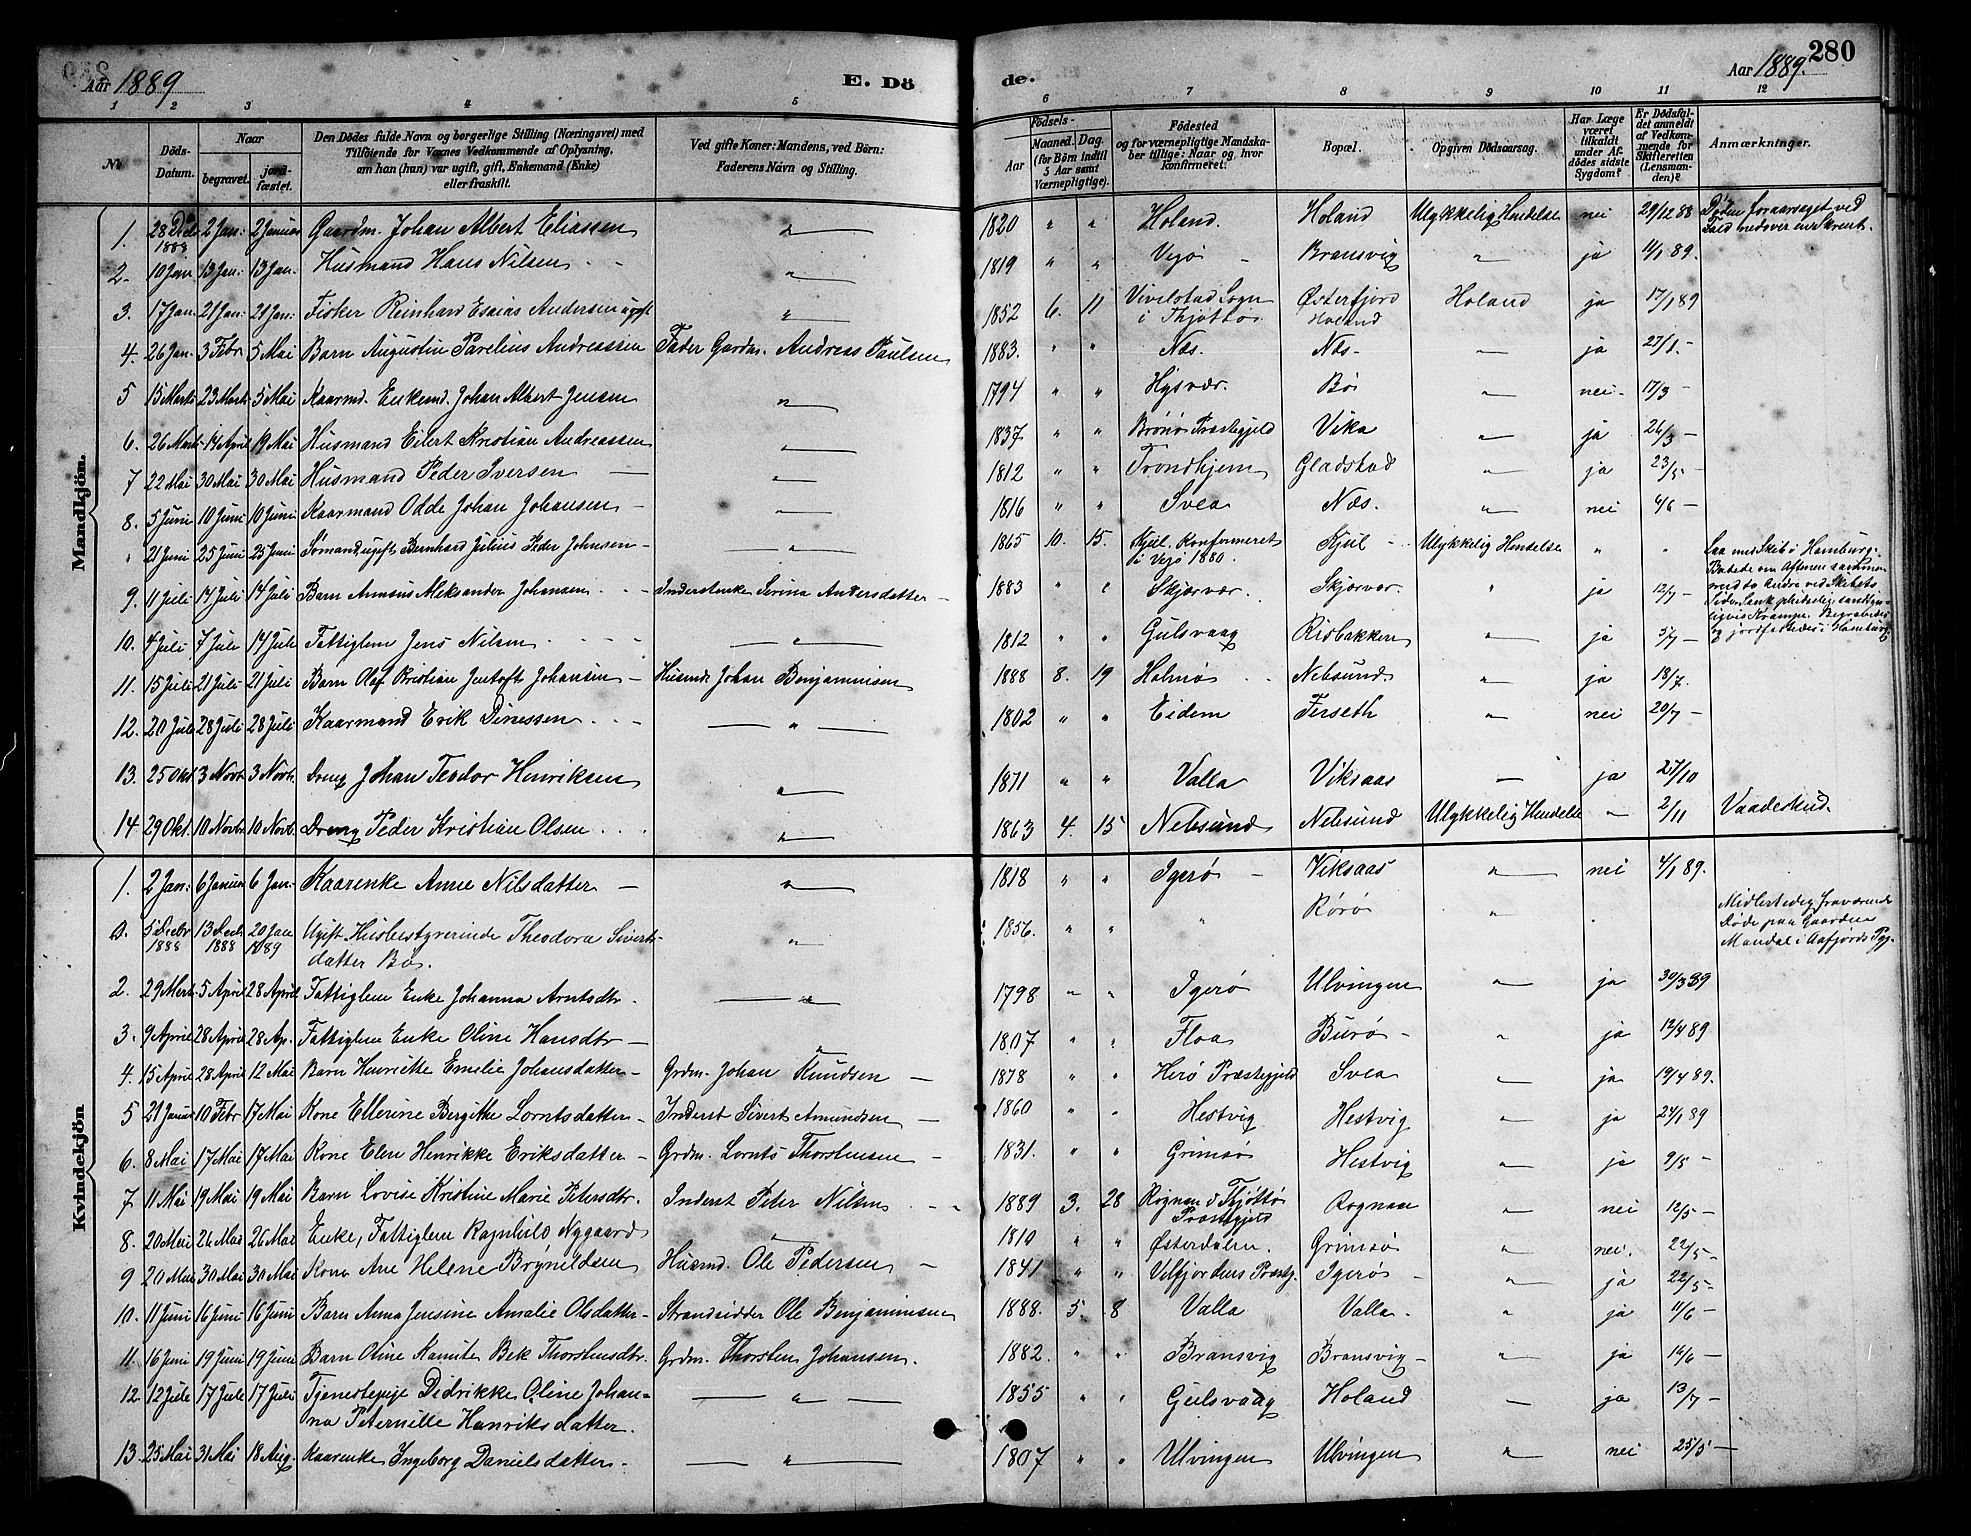 Aar 1889
E. Dö
de.
Aar 1889.
280
1 2 3 4 5 6 7 8 9 10 11 12
No
Döds-Datum.
Naar
begravet.
jordfæstet.
Den Dödes fulde Navn og borgerlige Stilling (Næringsvei) med
Tilföiende for Voxnes Vedkommende af Oplysning,
om han (hun) var ugift, gift, Enkemand (Enke)
eller fraskilt.
Ved gifte Koner: Mandens, ved Börn:
Faderens Navn og Stilling.
Födsels-
Aar
Maaned. Dag.
(for Börn indtil
5 Aar samt
Værnepligtige).
Födested
og for værnepligtige Mandska-
ber tillige: Naar og hvor
konfirmeret.
Bopæl.
Opgiven Dödsaarsag.
Har Læge
været
tilkaldt
under Af-
dödes sidste
Sygdom?
Er Dödsfal-
det anmeldt
af Vedkom-
mende for
Skifteretten
(Lensman-
den)?
Anmærkninger.
Mandkjön.
1. 28 Dec 1888 2 Jan: 2 Januar Gaardm. Johan Albert Eliassen " 1820 " " Holand. Holand Ulykkelig Hendelse nei 29/12 88 Döden foraarsaget ved Fald nedover en Skrent.
2. 10 Jan 13 Jan: 13 Jan. Husmand Hans Nilsen " 1819 " " Vejö Bransvig " ja 11/1 89.
3. 17 Jan 21 Jan: 21 Jan: Fisker Reinhard Esaias Andersen ugift " 1852 6. 11 Vivelstad Sogn i Thjöttö. Østerfjord Holand Holand ja 17/1 89
4. 26 Jan. 3 Febr 5 Mai Barn Augustin Parelius Andreassen Fader Gardm. Andreas Paulsen 1883. " " Næs. Næs. " ja 27/1. -
5 15 Marts 23 Marts 5 Mai Kaarmd. Enkemd. Johan Albert Jensen " 1794 " " Hysvær. Bö " nei. 17/3 -
6. 26 Marts 14 April 19 Mai Husmand Eilert Kristian Andreassen " 1837 " " Brönö Præstegjeld Vika " ja 26/3 -
7 22 Mai 30 Mai 30 Mai Husmand Peder Iversen " 1812 " " Trondhjem Gladstad " ja 23/5 -
8. 5 Juni 10 Juni 10 Juni Kaarmand Odde Johan Johansen " 1816 " " Svea Næs. " nei 4/6 -
" 21 Juni 25 Juni 25 Juni Sömand ugift Bernhard Julius Peder Johnsen " 1865 10. 15. Kjul. Konfirmeret i Vejö 1880. Kjul Ulykkelig Hendelse " " Laa med Skib i Hamburg. Badede om Aftenen sammen med to andre ved Skibets Side. Sank pludselig, sandsynligvis Krampe. Begravedes og jordfæstedes i Hamburg
9. 11 Juli 14 Juli 14 Juli Barn Annsius Aleksander Johansen Inderstenke Serina Andersdatter 1883 " " Skjærvær. Skjærvær. " ja 12/7 -
10. 4 Juli 7 Jule 14 Jule Fattiglem Jens Nilsen " 1812 " " Gulsvaag Risbakken " ja 5/7 -
11. 15 Juli 21 Juli 21 Juli Barn Olaf Kristian Jentoft Johansen Husmd. Johan Benjaminsen 1888 8. 19 Holmö Nebsund. " ja 18/7.
12. 20 Jule 28 Juli 28 Juli Kaarmand Erik Dinessen " 1802 " " Eidem Ferseth " nei 20/7 -
13. 25 Okt 3 Novb. 3 Novb. Dreng Johan Teodor Henriksen " 1871 " " Valla Viksaas - ja 27/10
14 29 Okt. 10 Novbr. 10 Novb. Dreng Peder Kristian Olsen " 1863 4. 15 Nebsund Nebsund Ulykkelig Hendelse " 2/11 Vaadeskud.
Kvindekjön
1. 2 Jan: 6 Januar 6 Jan. Kaarenke Anne Nilsdatter " 1818 " " Igerö Viksaas " nei 4/1 89.
5 Decbr 1888 13 Dec. 1888 20 Jan 1889 Ugift Husbestyrerinde Theodora Sivertsdatter Bö. " 1856. " " " Rörö " . Midlertidig fraværende Döde paa Gaarden Mandal i Aafjords Pgj.
2. 29 Mart 5 April 28 April Fattiglem Enke Johanna Arntsdtr. " 1798 " " Igerö Ulvingen " ja 30/3 89
3. 9 April 28 April 28 Ap. Fattiglem Enke Oline Hansdtr " 1807 " " Floa Burö " ja 12/4 89
4. 15 April 28 April 12 Mai Barn Henriette Emelie Johansdatter Grdm. Johan Knudsen 1878 " " Herö Præstegjeld Svea " ja 19/4 89.
5 21 Januar 10 Febr 17 Mai Kone Ellerine Bergitte Lorntsdatter Inderst Sivert Amundsen 1860 " " Hestvig Hestvig " ja 24/1 89
6. 8 Mai 17 Mai 17 Mai Kone Elen Henrikke Eriksdatter Grdm. Lornts Thorstensen 1831. " " Grimsö Hestvig " ja 9/5 -
7 11 Mai 19 Mai 19 Mai Barn Lovise Kristine Marie Petersdtr. Inderst Peter Nilsen 1889 3. 28 Rognan i Thjöttö Præstegjeld Rognan " nei 12/5 -
8. 20 Mai 26 Mai 26 Mai Enke, Fattiglem Ragnhild Nygaard " 1819 " " Østerdalen. Grimsö " nei. 22/5 -
9 20 Mai 30 Mai 30 Mai Kone Ane Helene Brynildsen Husmd. Ole Pedersen 1841 " " Velfjordens Præstg. Igerö " ja 22/5 -
10. 11 Juni 16 Juni 16 Juni Barn Anna Jensine Amalie Olsdatter Strandsidder Ole Benjaminsen 1888. 5. 8 Valla Valla " ja 11/6 -
11. 16 Juni 19 Juni 19 Juni Barn Oline Kamite Bek Thorstensdtr. Grdm. Thorsten Johansen. 1882. " " Bransvig Bransvig " ja 16/6 -
12. 12 Jule 17 Jule 17 Juli Tjenestepige Didrikke Oline Johanna Peternille Henriksdatter. " 1855 " " Gulsvaag Holand - ja 13/7 -
13. 25 Mai 31 Mai 18 Aug. Kaarenke Ingeborg Danielsdatter. " 1807 " " Ulvingen Ulvingen " nei 25/5 -